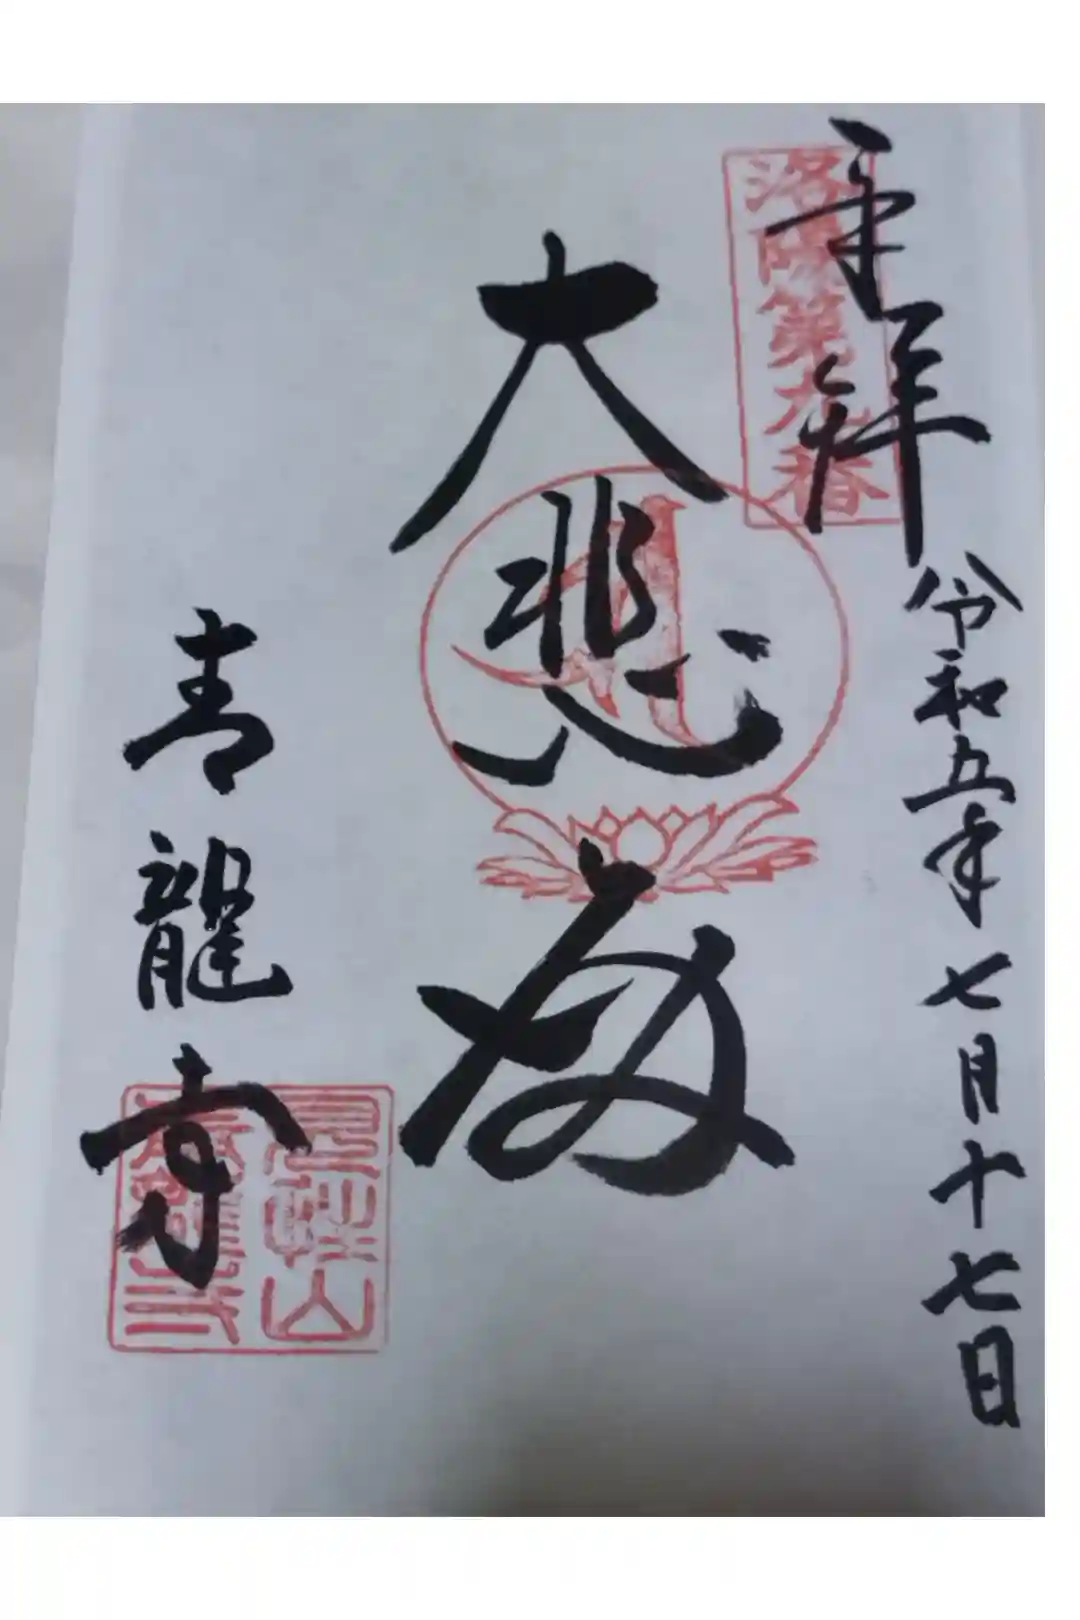 奉拝
洛陽第九番
令和五年七月十七日
大悲殿
青龍寺
見性山